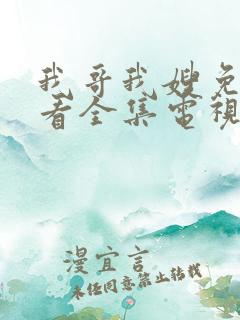 我哥我嫂免
看全集電視
漫宜言
未任同意禁止转载